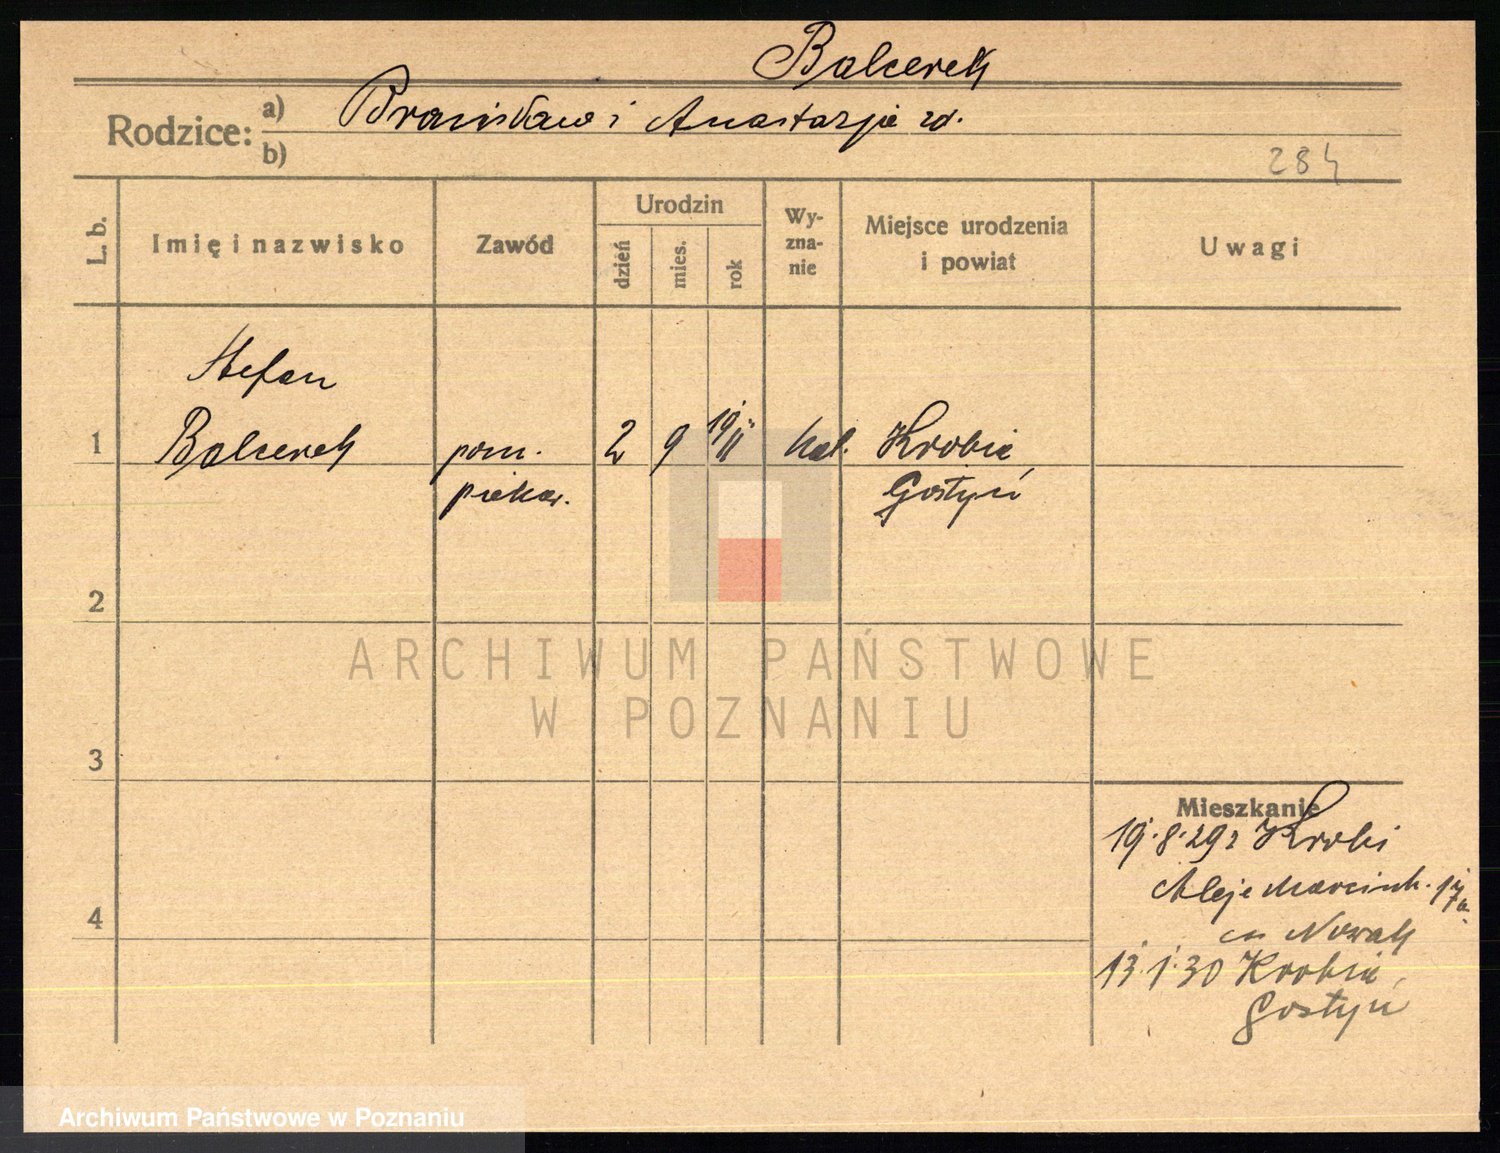 Balcerek
Rodzice: a) Bronisław i Anastazja zd.
b)
284
L. b. Imię i nazwisko Zawód Urodzin dzień mies. rok Wy-zna-nie Miejsce urodzenia i powiat Uwagi
Stefan
1 Balcerek pom. 2 9 1911 kat. Krobia
piekar. Gostyń
2
ARCHIWUM PAŃSTWOWE
W POZNANIU
3
Mieszkanie
19.8.29 z Krobi
Aleje Marcink. 17a
4
Nowak
13.1.30 Krobia,
Gostyń
Archiwum Państwowe w Poznaniu